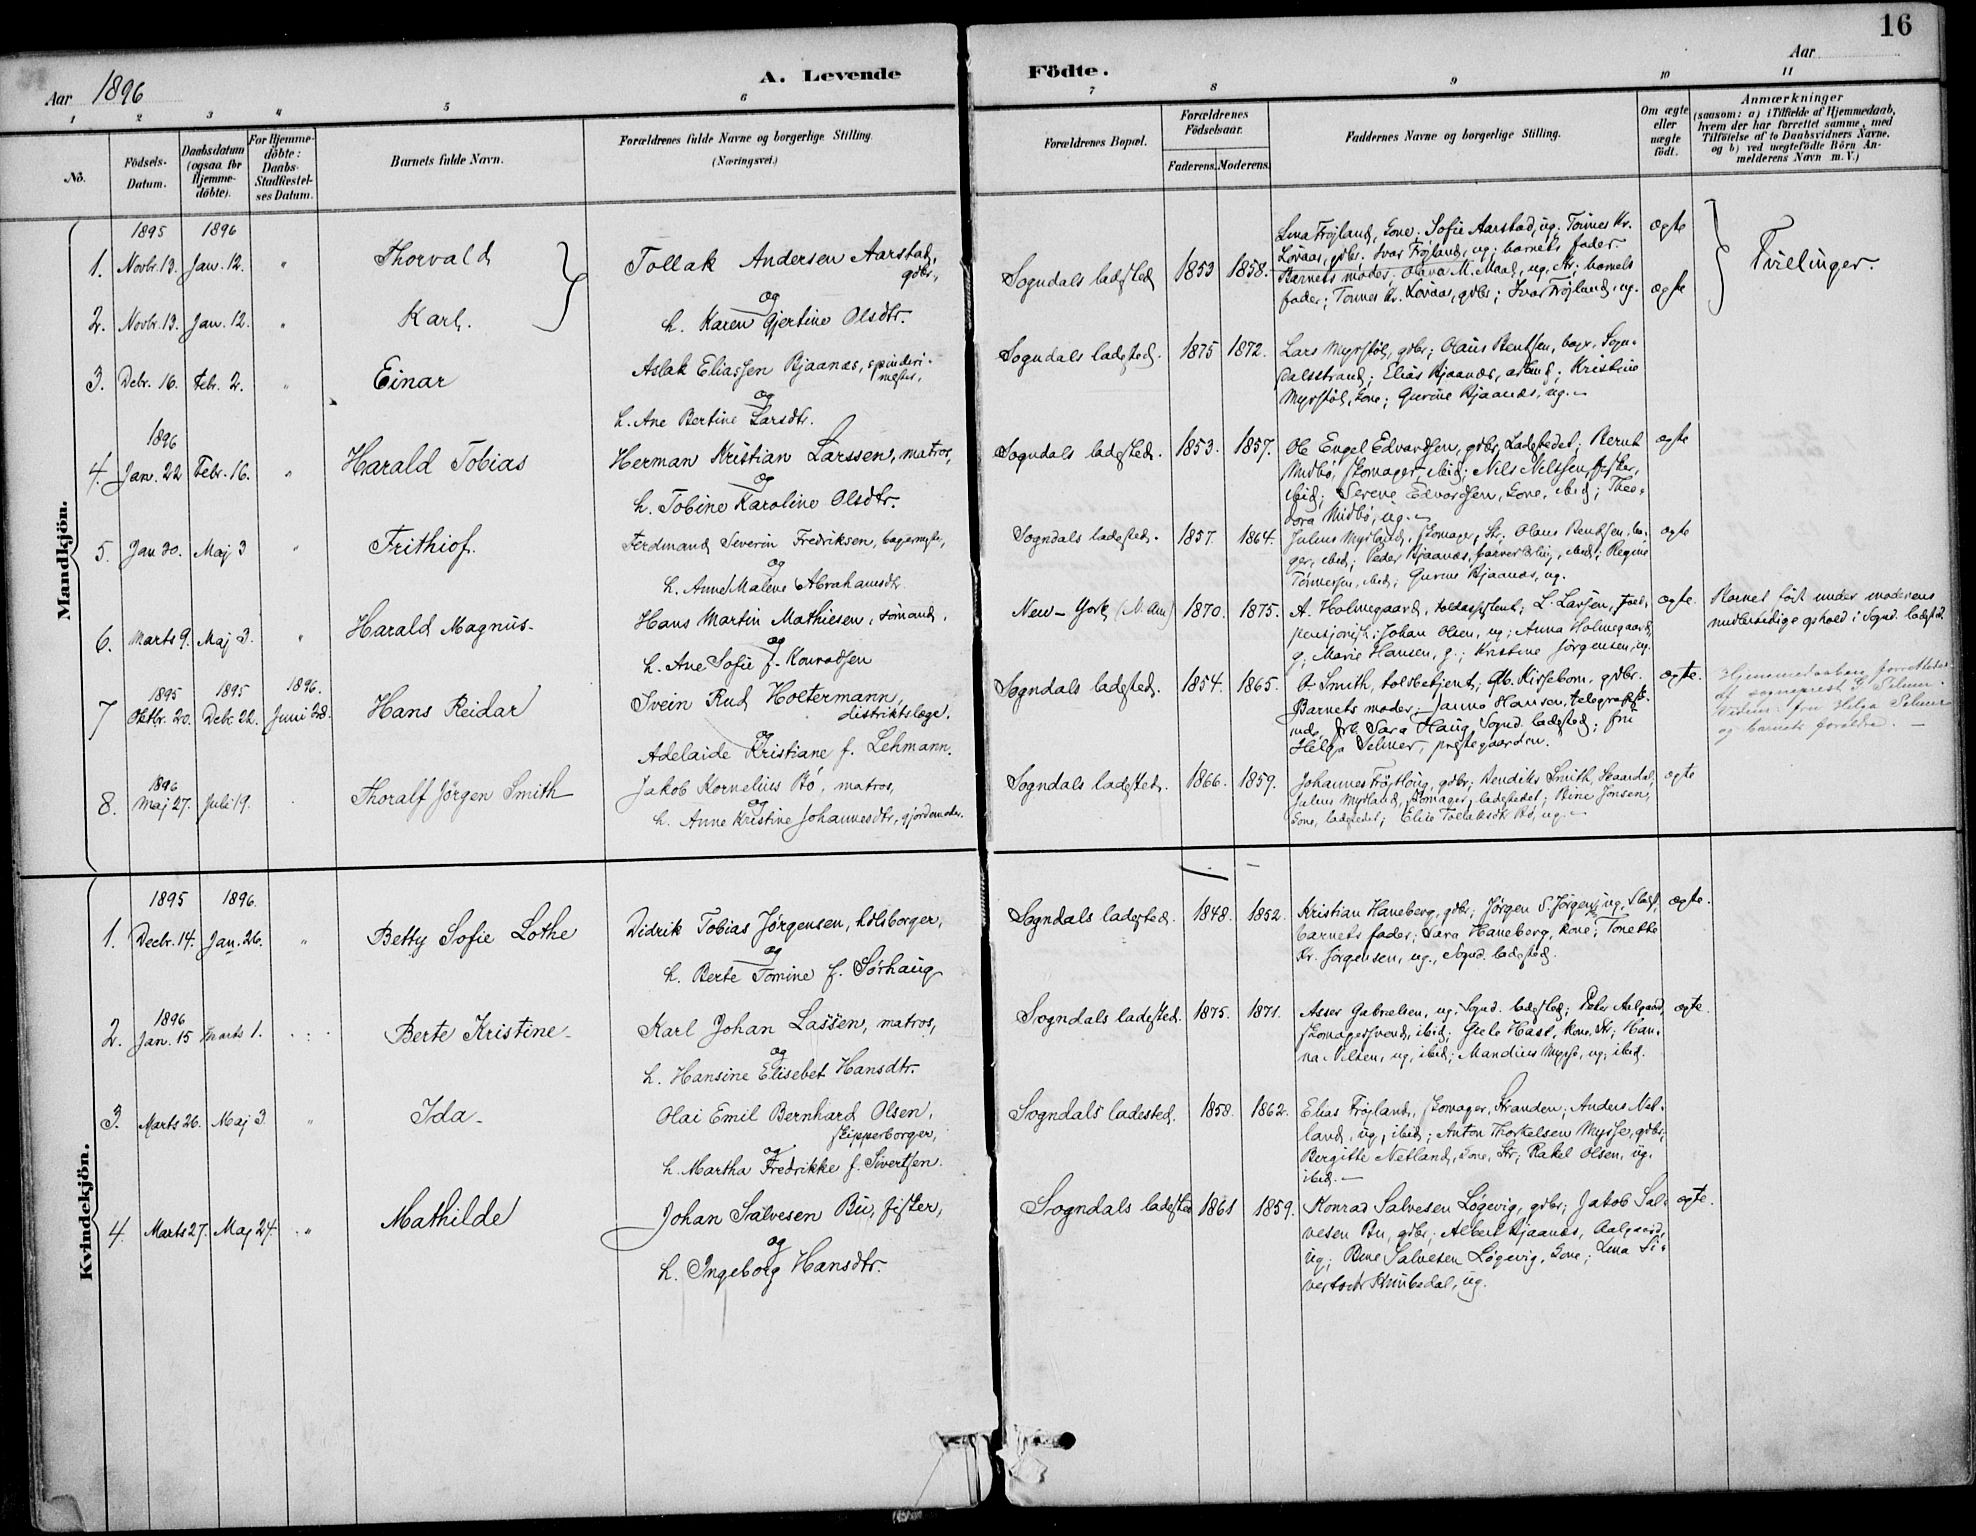 16
Aar 1896
A. Levende Födte.
Aar
1 2 3 4 5 6 7 8 9 10 11
No.
Födsels-Datum.
Daabsdatum (ogsaa for Hjemmedöbte).
For Hjemmedöbte: Daabs-Stadfestelses Datum.
Barnets fulde Navn.
Forældrenes fulde Navne og borgerlige Stilling.
(Næringsvei.)
Forældrenes Bopæl.
Forældrenes Födselsaar.
Faderens. Moderens.
Faddernes Navne og borgerlige Stilling.
Om ægte eller uægte födt.
Anmærkninger
(saasom: a) i Tilfælde af Hjemmedaab,
hvem der har forrettet samme, med
Tilföielse af to Daabsvidners Navne.
og b) ved uægtefödte Börn An-
melderens Navn m. V.)
Mandkjön.
1895 1896
1. Novbr. 13. Jan. 12. " Thorvald
Tollak Andersen Aarstad, gdbr.,
og
h. Karen Gjertine Olsdtr.
Sogndals ladested 1853 1858.
Lina Frøjland, kone; Sofie Aarstad, ug. Tønnes Kr.
Løvaas, gdbr. Ivar Frøjland, ug; barnets fader
Barnets moder, Olava M. Maal, ug. Str; barnets
fader; Tønnes Kr. Løvaas, gdbr; Ivar Frøjland, ug.
ægte
ægte
Tvillinger.
2. Novbr. 13. Jan. 12. " Karl.
3. Debr. 16. Febr. 2. " Einar
Aslak Eliassen Bjaanæs, spinderi-
mester,
og
h. Ane Bertine Larsdtr.
Sogndals ladested. 1875 1872.
Lars Myrstøl, gdbr; Olaus Bentsen, bager, Sogn-
dalsstrand; Elias Bjaanæs, arbmd; Kristine
Myrstøl, kone; Gurine Bjaanæs, ug.
1896
4. Jan. 22 Febr. 16. " Harald Tobias
Herman Kristian Larssen, matros,
og
h. Tobine Karoline Olsdtr.
Sogndals ladested. 1853. 1857.
Ole Engel Edvardsen, gdbr, Ladestedet; Bernt
Midbø, skomager, ibid; Nils Nilssen, fisker,
ibid; Serene Edvardsen, kone, ibid; Theo-
dora Midbø, ug.
ægte
5. Jan 30. Maj 3 " Frithiof.
Ferdinand Severin Fredriksen, bagermester,
og
h. Anne Malene Abrahamsdtr
Sogndals ladested. 1857. 1864.
Julius Myrland, skomager, Str; Olaus Bentsen, ba-
ger, ibid; Peder Bjaanæs, ibid; Regine
Tønnessen, ibid; Gurine Bjaanæs, ug.
ægte
6. Marts 9. Maj 3. " Harald Magnus.
Hans Martin Mathiesen, sømand,
og
h. Ane Sofie f. Konradsen
New-York (N. Am) 1870. 1875.
A. Holmegaard, toldassistent; L. Larsen,
Johan Olsen, ug; Anna Holmegaard,
g; Marie Hansen, g.; Kristine Jörgensen, ug.
ægte.
Barnet født under moderens
midlertidige ophold i Sognd. ladested.
1895 1895 1896.
7 Oktbr. 20. Debr. 22. Juni 28. Hans Reidar
Svein Rud Holtermann,
distriktslæge.
og
Adelaide Kristiane f. Lehmann.
Sogndals ladested. 1854. 1865.
O. Smith, toldbetjent; Ab. Kirsebom, gdbr.
Barnets moder; Hansen, telegrafist-
inde, frk. Sara Haug, Sognd. ladested; fru
Helga Selmer, prestegaarden.
ægte.
Hjemmedaaben forrettedes
af sogneprest S. Selmer.
Vidner: fru Helga Selmer
og barnets forældre.
1896
8. Maj 27. Juli 19. Thoralf Jörgen Smith
Jakob Kornelius Bø, matros,
og
h. Anne Kristine Johannesdtr, gjordemoder.
Sogndals ladested. 1866. 1859.
Johannes Frøitlong, gdbr; Bendiks Smith, Skaardal;
Julius Myrland, skomager, ladestedet; Bine Jonsen,
kone, ladestedet; Elise Tollaksdtr Bø, ug.
ægte
Kvindekjön.
1895 1896.
1. Decbr. 14. Jan. 26. " Betty Sofie Lothe
Didrik Tobias Jörgensen, holsborger,
og
h. Berte Tomine f. Sörhaug
Sogndals ladested. 1848. 1852.
Kristian Haneberg, gdbr; Jörgen S. Jörgens., ug. Sladst,
barnets fader; Sara Haneberg, kone; Tonette
Kr. Jörgensen, ug., Sognd. ladested.
ægte.
1896
2. Jan. 15 Marts 1. " Berte Kristine
Karl Johan Lassen, matros,
og
h. Hansine Elisebet Hansdtr.
Sogndals ladested. 1875. 1871.
Asser Gabrielsen, ug. Sognd. ladested; Peder Aalgaard,
skomagersvend, ibid; Gele Hast, kone, Str; Han-
na Nilsen, ug, ibid; Mandius Mysse, ug; ibid.
ægte.
3. Marts 26. Maj 3. " Ida
Olai Emil Bernhard Olsen,
skipperborger,
og
h. Martha Fredrikke f. Sivertsen.
Sogndals ladested. 1858. 1862.
Elias Frøjland, skomager, Stranden; Anders Net-
land, ug, ibid; Anton Thorkelsen Mysse, gdbr;
Bergitte Netland, kone, Str; Rakel Olsen, ug.
ibid.
4. Marts 27. Maj 24. " Mathilde
Johan Salvesen Bu, fisker,
og
h. Ingeborg Hansdtr.
Sogndals ladested 1861 1859.
Konrad Salvesen Løgevig, gdbr; Jakob Sal-
vesen Bu, gdbr; Albert Bjaanæs, Aalgaard,
ug; Bine Salvesen Løgevig, kone; Lina Si-
vertsdtr Stuibedal, ug.
ægte.